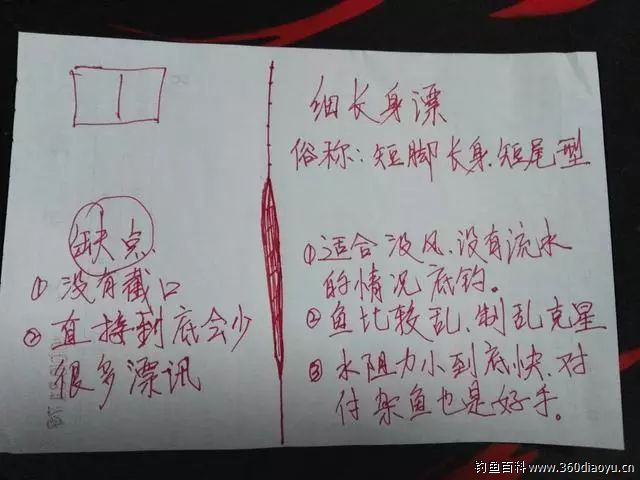 细长身漂
俗称：短脚长身、短尾型
缺点
① 没有截口
② 直接到底会少
很多漂讯
①适合没风、没有流水
的情况底钓。
②鱼比较乱、制乱克星
③水阻力小到底快、对
付杂鱼也是好手。
钓鱼百科www.360diaoyu.cn